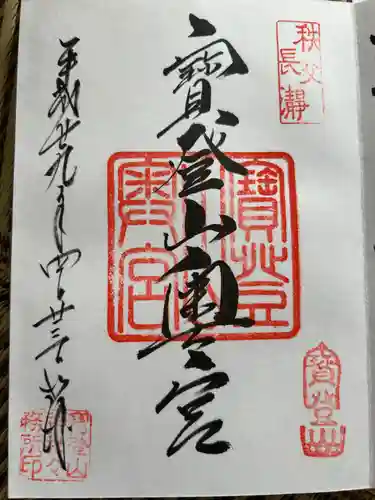 秩父
長瀞
寶登山奥宮
寶登山奥宮
寶登山
平成廿九年四月廿三日
寶登山
務所印